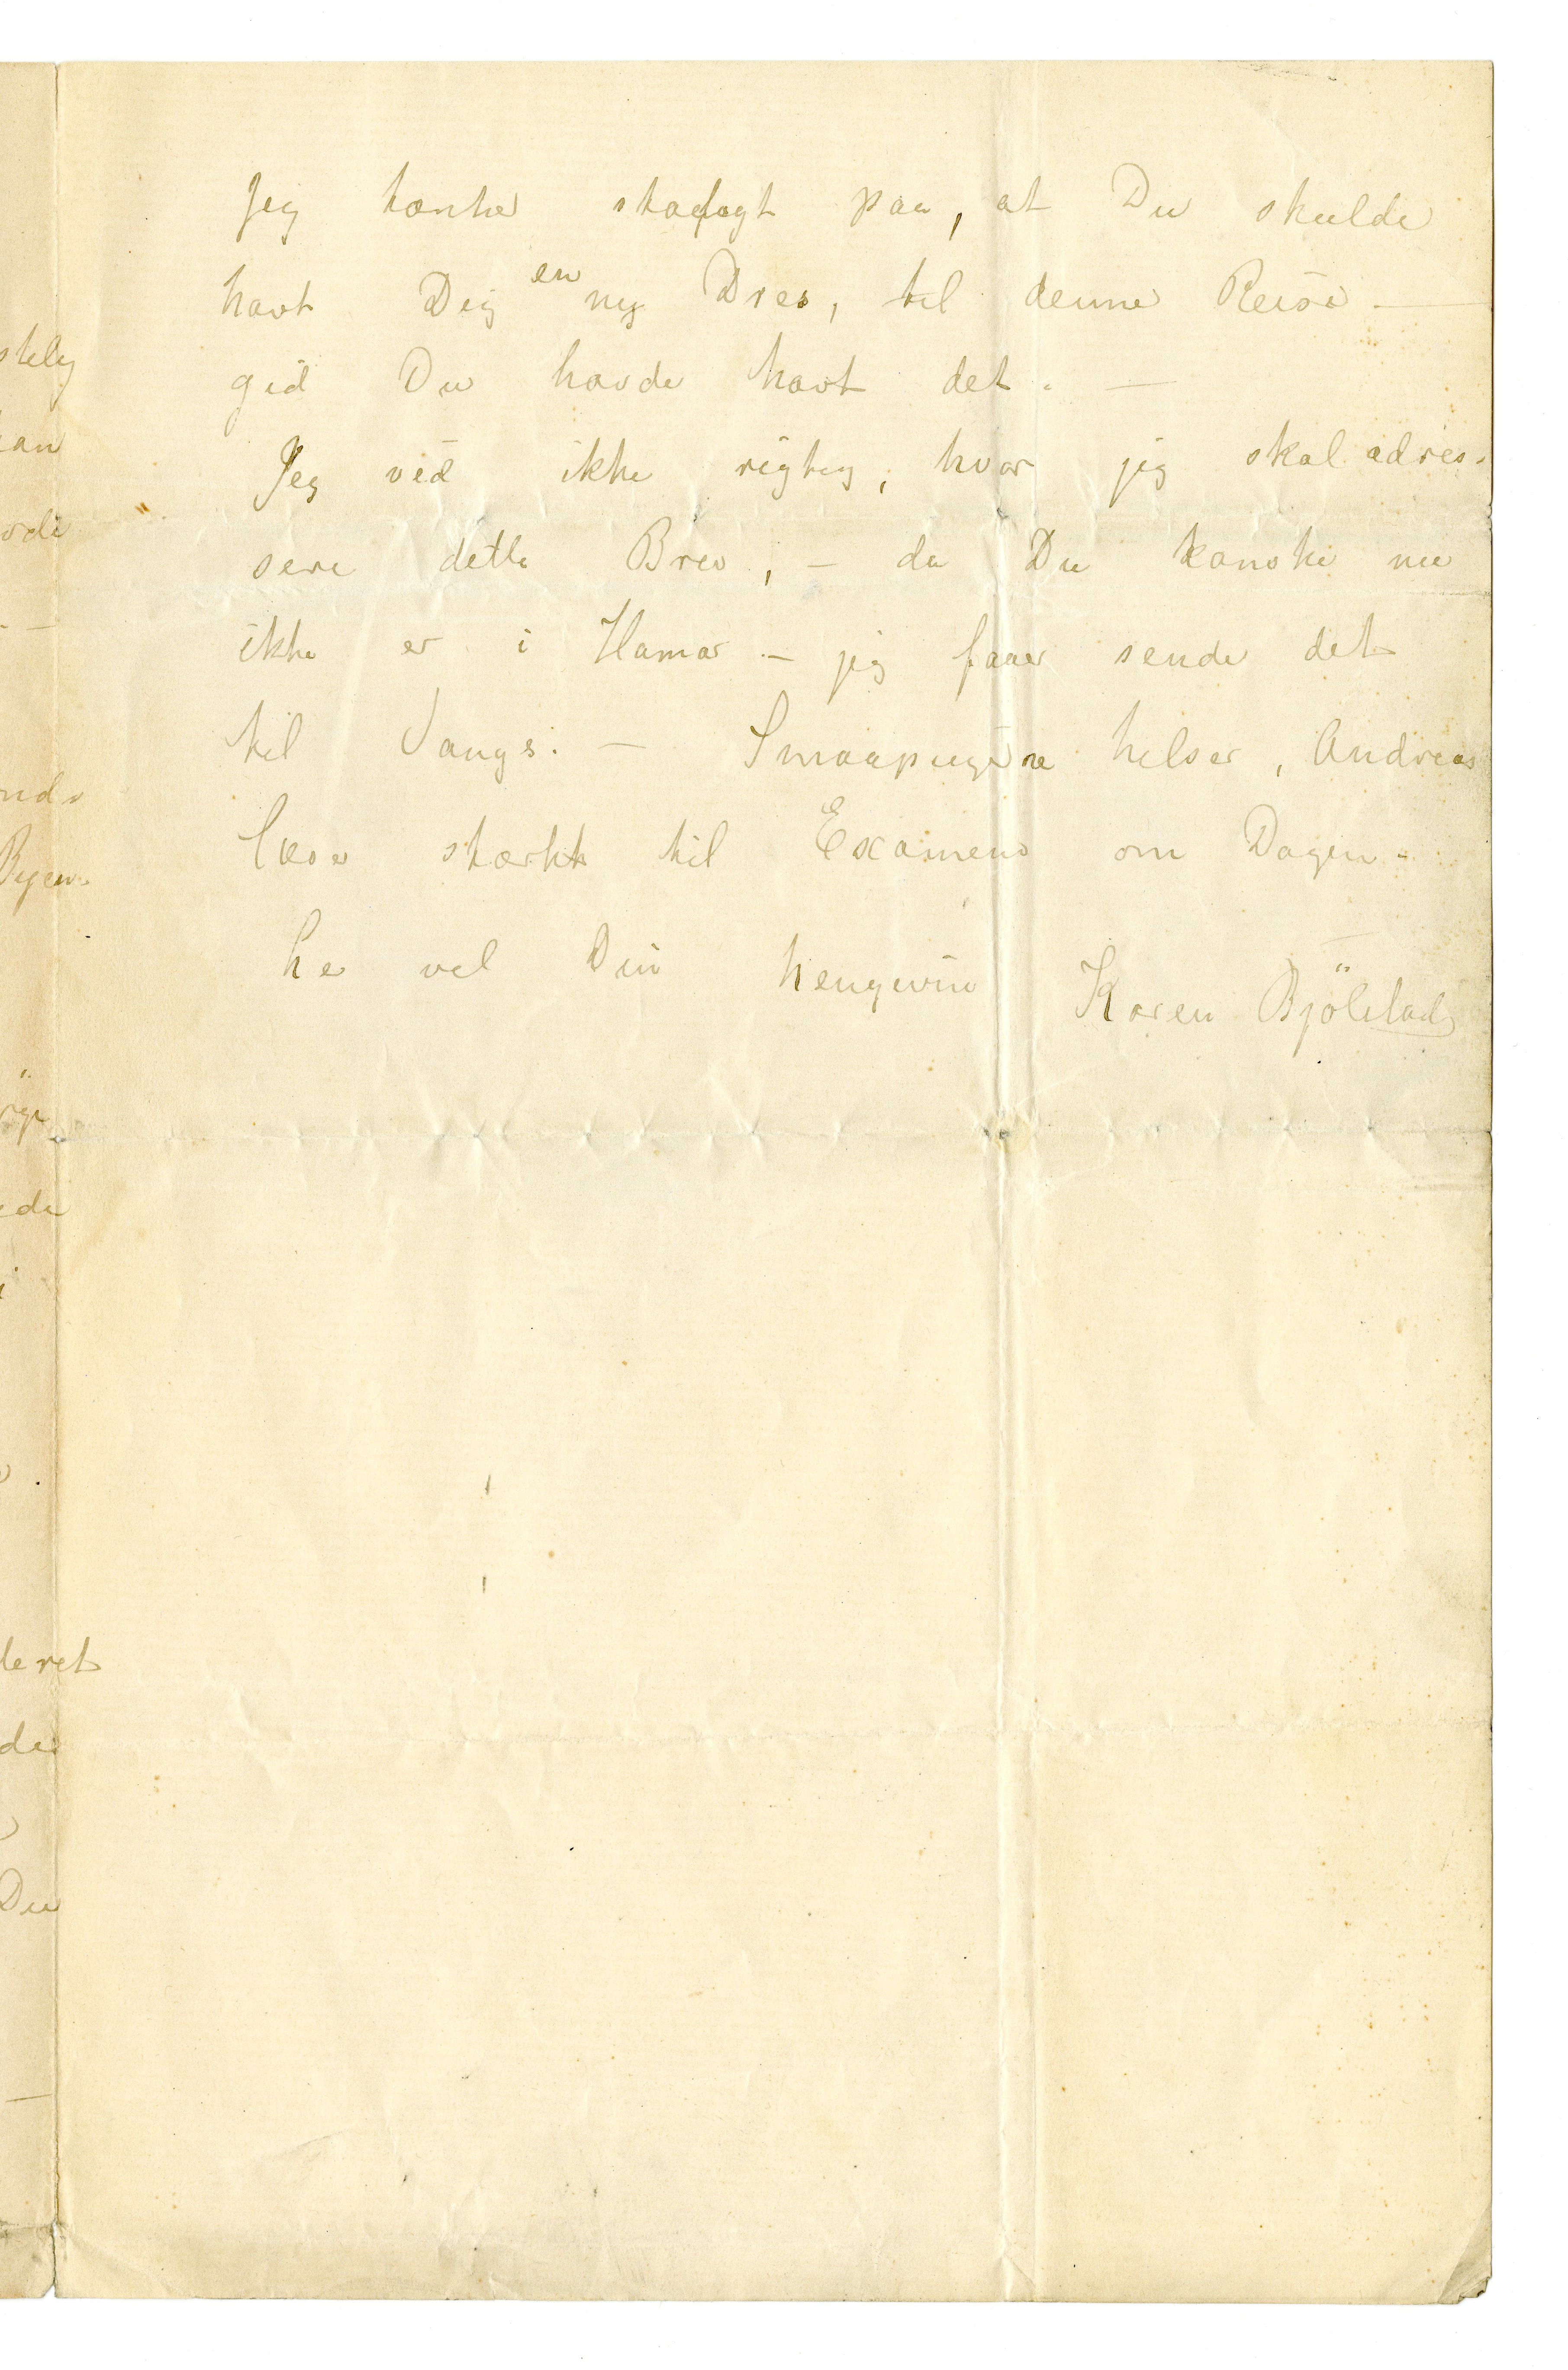 Jeg tænker stadigt paa, at Du skulde
havt Dig en ny Dres, til denne Reise —
gid Du havde havt det. —
Jeg ved ikke rigtig, hvor jeg skal adres-
sere dette Brev, — da Du kanske nu
ikke er i Hamar — jeg faaer sende det
til Vangs. — Smaapigerne hilser, Andreas
læser stærkt til Examen om Dagen —
Lev vel Din hengivne Karen Bjölstad